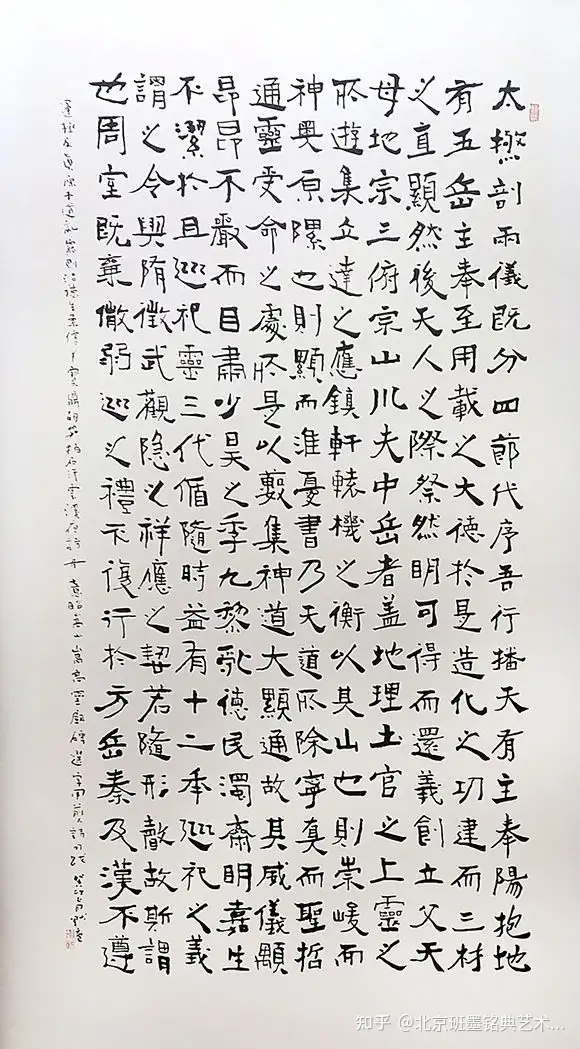 太撚剖兩儀既分四節代序吾行播天有主奉陽抱地
有五岳主奉至用載之大德於是造化之功建而三材
之直顯然後天人之際祭然明可得而還義創立父天
母地宗三俯宗山川夫中岳者盖地理土官之上靈之
所遊集立達之應鎮軒轅機之衡以其山也則崇峻而
神奥原隰也則顯而淮憂書乃天道所除寧真而聖哲
通靈受命之處所是以藪集神道大顯通故其威儀顒
昂昂不嚴而目肅少昊之季九黎乱德民瀆齋明嘉生
不潔於且巡祀靈三代循隨時益有十二年巡祀之義
謂之令與隋徵武觀隐之祥應之契若隨形聲故斯謂
也周室既棄微弱巡之禮不復行於方岳秦及漢不遵
嵩高靈廟碑
知乎 @北京班墨铭典艺术...